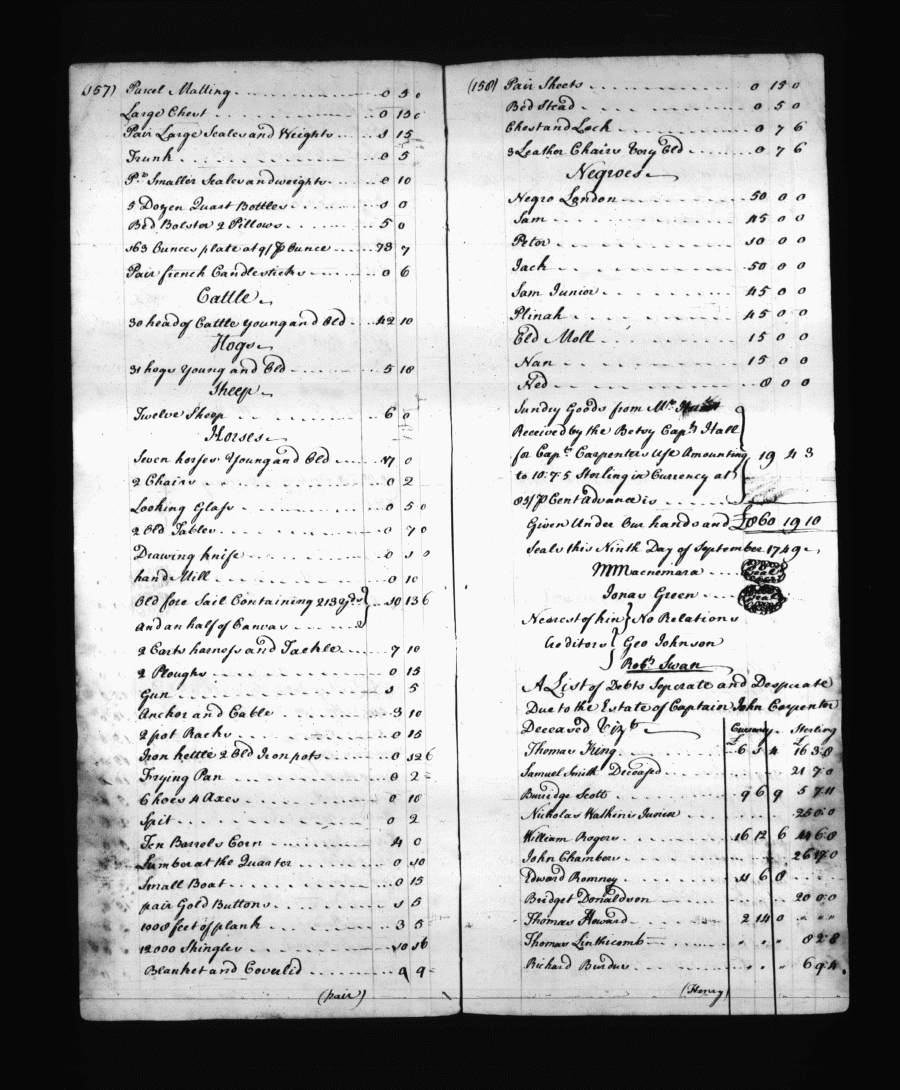 (157) Parcel Malling 0 5 0
Large Chest 0 15 0
Pair Large Scales and Weights 1 15
Trunk 0 5
Pr Smaller Scales and weights 0 10
5 Dozen Quart Bottles 1 0
Bed Bolster 2 Pillows 5 0
163 Ounces plate at 9/ P Ounce 73 7
Pair french Candlesticks 0 6
Cattle
30 head of Cattle Young and Old 42 10
Hogs
31 hogs Young and Old 5 18
Sheep
Twelve Sheep 6 0
Horses
Seven horses Young and Old 17 0
2 Chairs 0 2
Looking Glass 0 5 0
2 Old Tables 0 7 0
Drawing knife 0 1 0
hand Mill 0 10
Old fore Sail Containing 213 Yds } 10 13 6
and an half of Canvas
2 Carts harness and Tackle 7 10
2 Ploughs 0 15
Gun 1 5
Anchor and Cable 3 10
2 pot Racks 0 15
Iron kettle 2 Old Iron pots 0 12 6
Frying Pan 0 2
6 hoes 4 Axes 0 18
Spit 0 2
Ten Barrels Corn 4 0
Lumber at the Quarter 0 10
Small Boat 0 15
pair Gold Buttons 1 5
1008 feet of plank 3 5
12000 Shingles 10 16
Blanket and Coverlid 0 9
(pair)
(158) Pair Sheets 0 15 0
Bed Stead 0 5 0
Chest and Lock 0 7 6
3 Leather Chairs Very Old 0 7 6
Negroes
Negro London 50 0 0
Sam 45 0 0
Peter 10 0 0
Jack 50 0 0
Sam Junior 45 0 0
Plinah 45 0 0
Old Moll 15 0 0
Nan 15 0 0
Ned 8 0 0
Sundry Goods from Mr
Received by the Betsy Capt Hall
for Capt Carpenters Use Amounting 19 4 3
to 10.7.5 Sterling in Currency at
85/ P Cent advance is
Given Under Our hands and £860 19 10
Seals this Ninth Day of September 1749
M Macnemara
Jonas Green
Nearest of kin } No Relations
Creditors } Geo Johnson
Robt Swan
A List of Debts Seperate and Desperate
Due to the Estate of Captain John Carpenter
Deceased Vizt Currency Sterling
Thomas King 6 5 4 16 3 8
Samuel Smith Deceased 21 7 0
Burridge Scott 9 6 9 5 7 11
Nicholas Watkins Junior 25 0 0
William Rogers 16 12 6 44 6 8
John Chambers 26 17 0
Edward Romney 11 6 8
Bridget Donaldson 20 0 0
Thomas Howard 2 14 0
Thomas Linthicomb 8 2 8
Richard Burdus 6 9 4
(Henry)